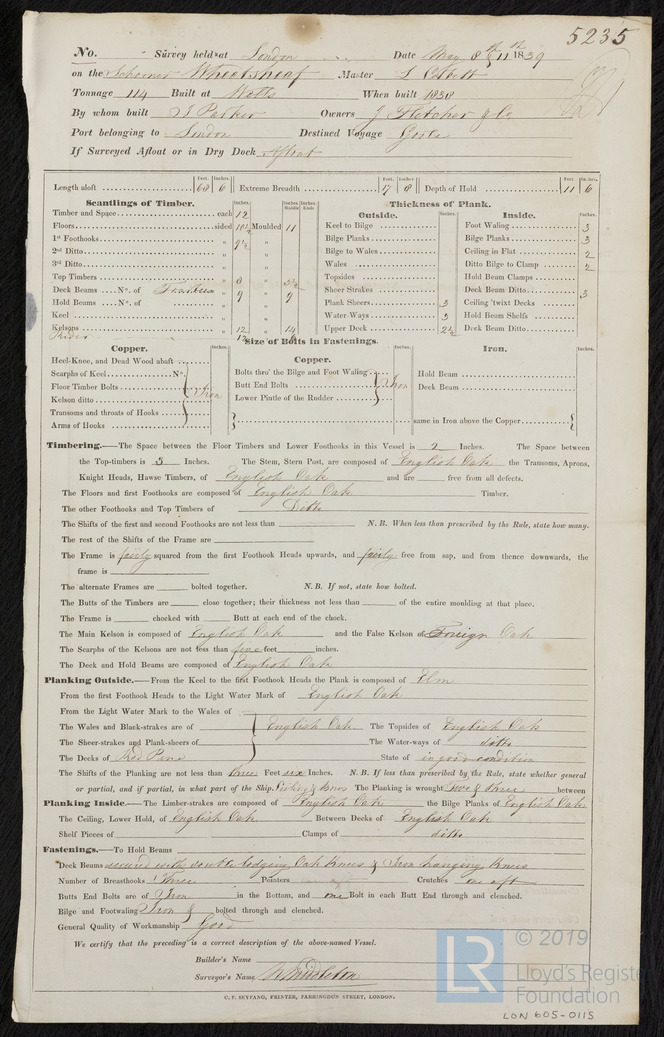 5235
No. Survey held at London Date May 8th & 11th 1839
on the Schooner Wheatsheaf Master
Tonnage 114 Built at Wells When built 1838
By whom built J Parker Owners J Fletcher & Co
Port belonging to London Destined Voyage Goole
If Surveyed Afloat or in Dry Dock Afloat
Length aloft Feet. 68 Inches. 6 Extreme Breadth Feet. 17 Inches. 8 Depth of Hold Feet. 11 Inches. 6
Scantlings of Timber. Thickness of Plank.
Outside. Inside.
Timber and Space each 12 Keel to Bilge Foot Waling 3
Floors sided 10½ Moulded 11 Bilge Planks Bilge Planks 3
1st Foothooks 9½ Bilge to Wales Ceiling in Flat 2
2nd Ditto Wales Ditto Bilge to Clamp 2
3rd Ditto Topsides Hold Beam Clamps
Top Timbers 8 5½ Sheer Strakes Deck Beam Ditto 3
Deck Beams No. of 9 9 Plank Sheers 3 Ceiling 'twixt Decks
Hold Beams No. of Water-Ways 3 Hold Beam Shelfs
Keel Upper Deck 2½ Deck Beam Ditto
Kelsons 12 14
Rider 12
Size of Bolts in Fastenings.
Copper. Copper. Iron.
Heel-Knee, and Dead Wood abaft
Scarphs of Keel No. Bolts thro' the Bilge and Foot Waling Hold Beam
Floor Timber Bolts Iron Butt End Bolts Iron Deck Beam
Kelson ditto Lower Pintle of the Rudder
Transoms and throats of Hooks
Arms of Hooks same in Iron above the Copper
Timbering.—The Space between the Floor Timbers and Lower Foothooks in this Vessel is 2 Inches. The Space between
the Top-timbers is 5 Inches. The Stem, Stern Post, are composed of English Oak the Transoms, Aprons,
Knight Heads, Hawse Timbers, of English Oak and are free from all defects.
The Floors and first Foothooks are composed of English Oak Timber.
The other Foothooks and Top Timbers of Ditto
The Shifts of the first and second Foothooks are not less than N. B. When less than prescribed by the Rule, state how many.
The rest of the Shifts of the Frame are
The Frame is fairly squared from the first Foothook Heads upwards, and fairly free from sap, and from thence downwards, the
frame is
The alternate Frames are bolted together. N. B. If not, state how bolted.
The Butts of the Timbers are close together; their thickness not less than of the entire moulding at that place.
The Frame is chocked with Butt at each end of the chock.
The Main Kelson is composed of English Oak and the False Kelson of Foreign Oak
The Scarphs of the Kelsons are not less than five feet inches.
The Deck and Hold Beams are composed of English Oak
Planking Outside.—From the Keel to the first Foothook Heads the Plank is composed of Elm
From the first Foothook Heads to the Light Water Mark of English Oak
From the Light Water Mark to the Wales of
The Wales and Black-strakes are of English Oak The Topsides of English Oak
The Sheer-strakes and Plank-sheers of The Water-ways of ditto
The Decks of Red Pine State of in good condition
The Shifts of the Planking are not less than three Feet six Inches. N. B. If less than prescribed by the Rule, state whether general
or partial, and if partial, in what part of the Ship. The Planking is wrought Two & three between
Planking Inside.—The Limber-strakes are composed of English Oak the Bilge Planks of English Oak
The Ceiling, Lower Hold, of English Oak Between Decks of English Oak
Shelf Pieces of Clamps of ditto
Fastenings.—To Hold Beams
Deck Beams secured with double lodging Oak Knees & Iron hanging Knees
Number of Breasthooks Three Pointers Crutches one aft
Butts End Bolts are of Iron in the Bottom, and one Bolt in each Butt End through and clenched.
Bilge and Footwaling Iron & bolted through and clenched.
General Quality of Workmanship Good
We certify that the preceding is a correct description of the above-named Vessel.
Builder's Name
Surveyor's Name N Middleton
C. F. SEYFANG, PRINTER, FARRINGDON STREET, LONDON.
LR © 2019
Lloyd's Registe
Foundation
LON 605-0115